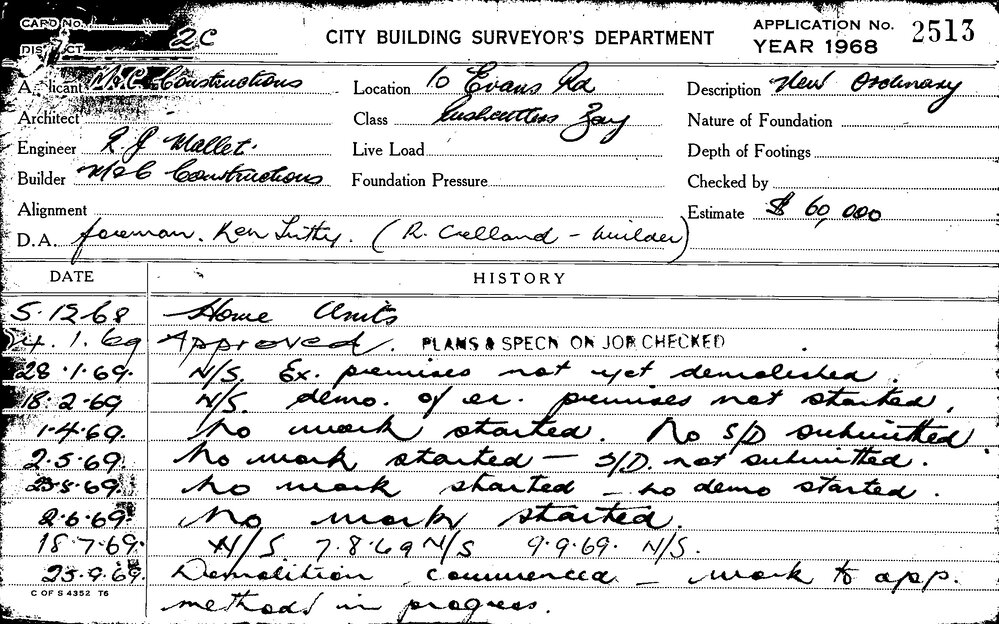 CARD No.
DISTRICT 2C
CITY BUILDING SURVEYOR'S DEPARTMENT
APPLICATION No. 2513
YEAR 1968
Applicant M&C Constructions
Location 10 Evans Rd
Description New Ordinary
Architect
Class Rushcutters Bay
Nature of Foundation
Engineer R. J Mallet.
Live Load
Depth of Footings
Builder M&C Constructions
Foundation Pressure
Checked by
Alignment
Estimate $ 60,000
D.A. foreman. Ken (R. Celland - builder)
DATE HISTORY
5.12.68 Home Units
1.69 Approved. PLANS & SPECN ON JOB CHECKED
28.1.69. N/S. Ex. premises not yet demolished.
18.2.69 N/S. demo. of ex. premises not started.
1.4.69. No work started. No S/D submitted.
2.5.69. No work started - S/D. not submitted.
23.5.69. No work started - no demo started.
2.6.69. No work started.
18.7.69. N/S 7.8.69 N/S 9.9.69. N/S.
23.9.69. Demolition commenced - work to app.
methods in progress.
C OF S 4352 T6